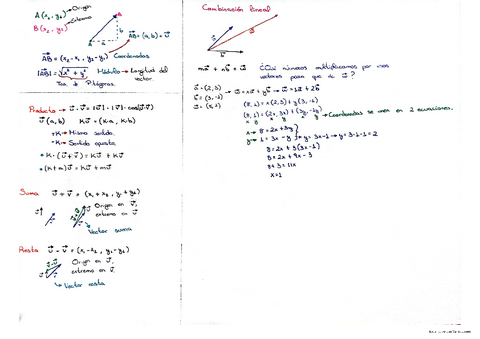 A (x₁, y₁) → Origen
B (x₂, y₂) → Extremo
A a b B
AB = (a, b) = u
AB = (x₂ - x₁, y₂ - y₁) Coordenadas
|AB| = √x² + y² Módulo → Longitud del vector.
Teo. de Pitágoras.
Producto → u · v = |u| · |v| · cos(u v)
u (a, b) K u = (K·a, K·b)
+K → Mismo sentido.
-K → Sentido opuesto
• K · (u + v) = K u + K v
• (K + m) u = K u + m u
Suma u + v = (x₁ + x₂, y₁ + y₂)
Origen en u,
extremo en v.
Vector suma
Resta u - v = (x₁ - x₂, y₁ - y₂)
Origen en v,
extremo en u.
Vector resta
Combinación lineal
¿Qué números multiplicamos por los
vectores para que dé u?
a = (2, 3)
b = (3, -1)
u = (8, 1)
→ u = x a + y b → u = 1a + 2b
(8, 1) = x (2, 3) + y (3, -1)
(8, 1) = (2x, 3x) + (3y, -1y) → Coordenadas se unen en 2 ecuaciones.
x → 8 = 2x + 3y
y → 1 = 3x - y → y = 3x - 1 → y = 3·1 - 1 = 2
8 = 2x + 3(3x - 1)
8 = 2x + 9x - 3
8 + 3 = 11x
x = 1